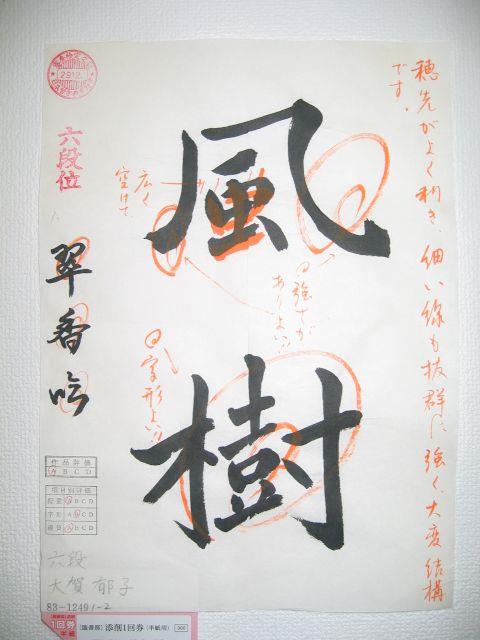 穂先がよく利き、細い線も抜群に強く、大変結構
です。
風
樹
広く
空けて
強さが
ありよい!!
字形よい!!
2912
六段位
翠香吟
作品評価
A B C D
項目別評価
配置 A B C D
字形 A B C D
線質 A B C D
六段
大賀郁子
83-12491-2
1回券
半紙
〔随書部〕添削1回券(半紙用)